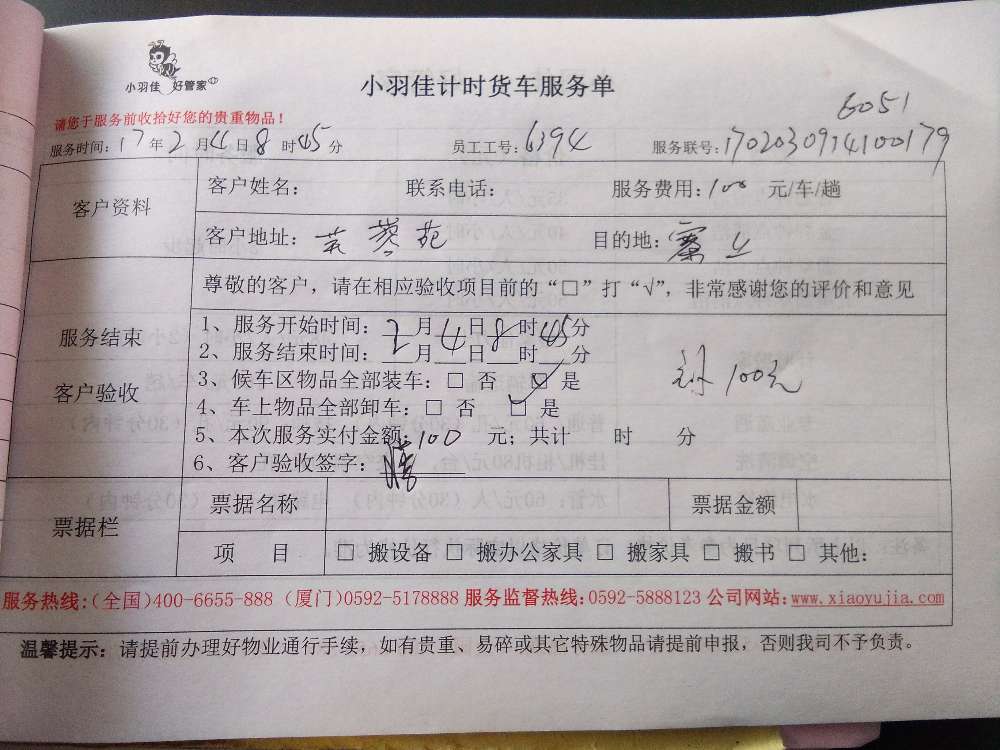 小羽佳 好管家
小羽佳计时货车服务单
6051
请您于服务前收拾好您的贵重物品！
服务时间：17年2月4日8时45分 员工工号：6394 服务联号：1702030914100179
客户资料
客户姓名： 联系电话： 服务费用：100 元/车/趟
客户地址：芙蓉苑 目的地：
尊敬的客户，请在相应验收项目前的“□”打“√”，非常感谢您的评价和意见
服务结束
客户验收
1、服务开始时间：2月4日8时45分
2、服务结束时间：__月__日__时__分
3、候车区物品全部装车：□ 否 ☑ 是
4、车上物品全部卸车：□ 否 ☑ 是
5、本次服务实付金额：100 元；共计 时 分
6、客户验收签字：
100元
票据栏
票据名称 票据金额
项 目 □ 搬设备 □ 搬办公家具 □ 搬家具 □ 搬书 □ 其他：
服务热线：(全国)400-6655-888 (厦门)0592-5178888 服务监督热线：0592-5888123 公司网站：www.xiaoyujia.com
温馨提示：请提前办理好物业通行手续，如有贵重、易碎或其它特殊物品请提前申报，否则我司不予负责。